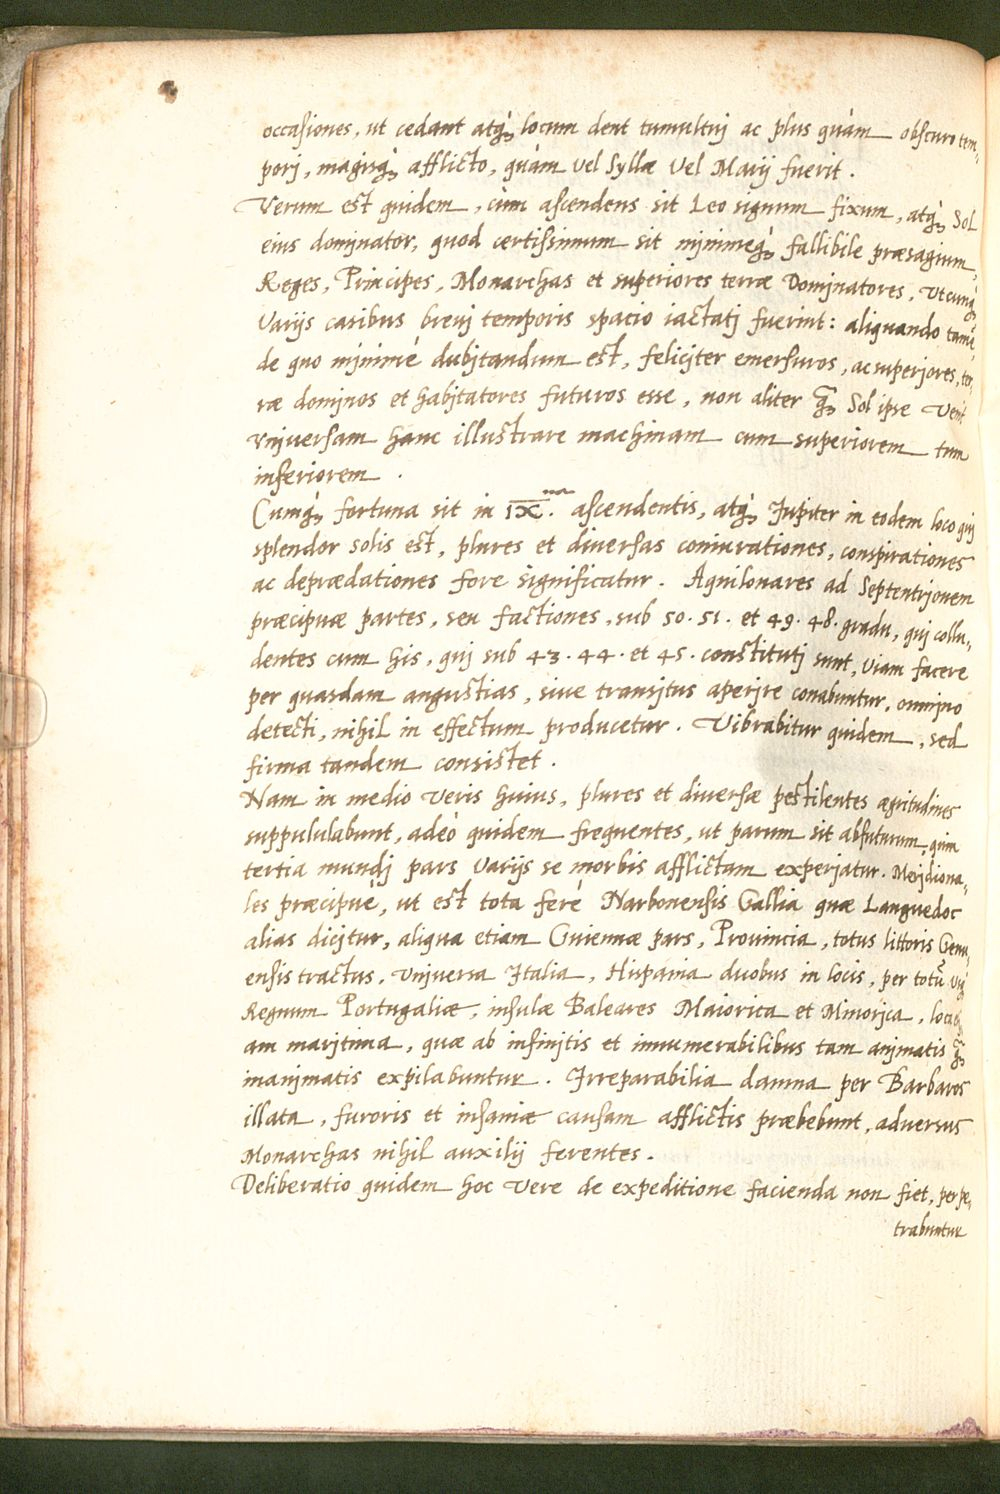 occasiones, ut cedant atq; locum dent tumultuj ac plus quàm obscuro tem-
porj, magisq; afflicto, quàm vel Syllæ vel Marij fuerit.
Verum est quidem, cùm ascendens sit Leo signum fixum, atq; Sol
eius dominator, quod certissimum sit minimeq; fallibile præsagium,
Reges, Principes, Monarchas et superiores terræ Dominatores, utcunq;
varijs casibus brevj temporis spacio iactatj fuerint: aliquando tamē,
de quo minimè dubitandum est, feliciter emersuros, ac superiores, ter-
ræ dominos et habitatores futuros esse, non aliter q̃ Sol ipse venit
vniversam hanc illustrare machinam cum superiorem tum
inferiorem.
Cumq; fortuna sit in IX.na ascendentis, atq; Jupiter in eodem loco quj
splendor solis est, plures et diversas coniurationes, conspirationes
ac deprædationes fore significatur. Aquilonares ad Septentrionem
præcipuæ partes, seu factiones, sub 50. 51. et 49. 48. gradu, quj collu-
dentes cum his, quj sub 43. 44. et 45. constitutj sunt, viam facere
per quasdam angustias, sive transitus aperire conabuntur, omnino
detecti, nihil in effectum producetur. Vibrabitur quidem, sed
firma tandem consistet.
Nam in medio veris huius, plures et diversæ pestilentes ægritudines
suppululabunt, adeò quidem frequentes, ut parum sit abfuturum, quin
tertia mundj pars varijs se morbis afflictam experiatur. Meridiona-
les præcipuè, ut est tota ferè Narbonensis Gallia quæ Languedoc
alias dicitur, aliqua etiam Guiennæ pars, Provincia, totus littoris Genu-
ensis tractus, vniversa Italia, Hispania duobus in locis, per totū
Regnum Portugaliæ, insulæ Baleares Maiorica et Minorica, loca
am maritima, quæ ab infinitis et innumerabilibus tam animatis q̃
inanimatis expilabuntur. Irreparabilia damna per Barbaros
illata, furoris et insaniæ causam afflictis præbebunt, adversus
Monarchas nihil auxilij ferentes.
Deliberatio quidem hoc vere de expeditione facienda non fiet, perpe-
trabuntur